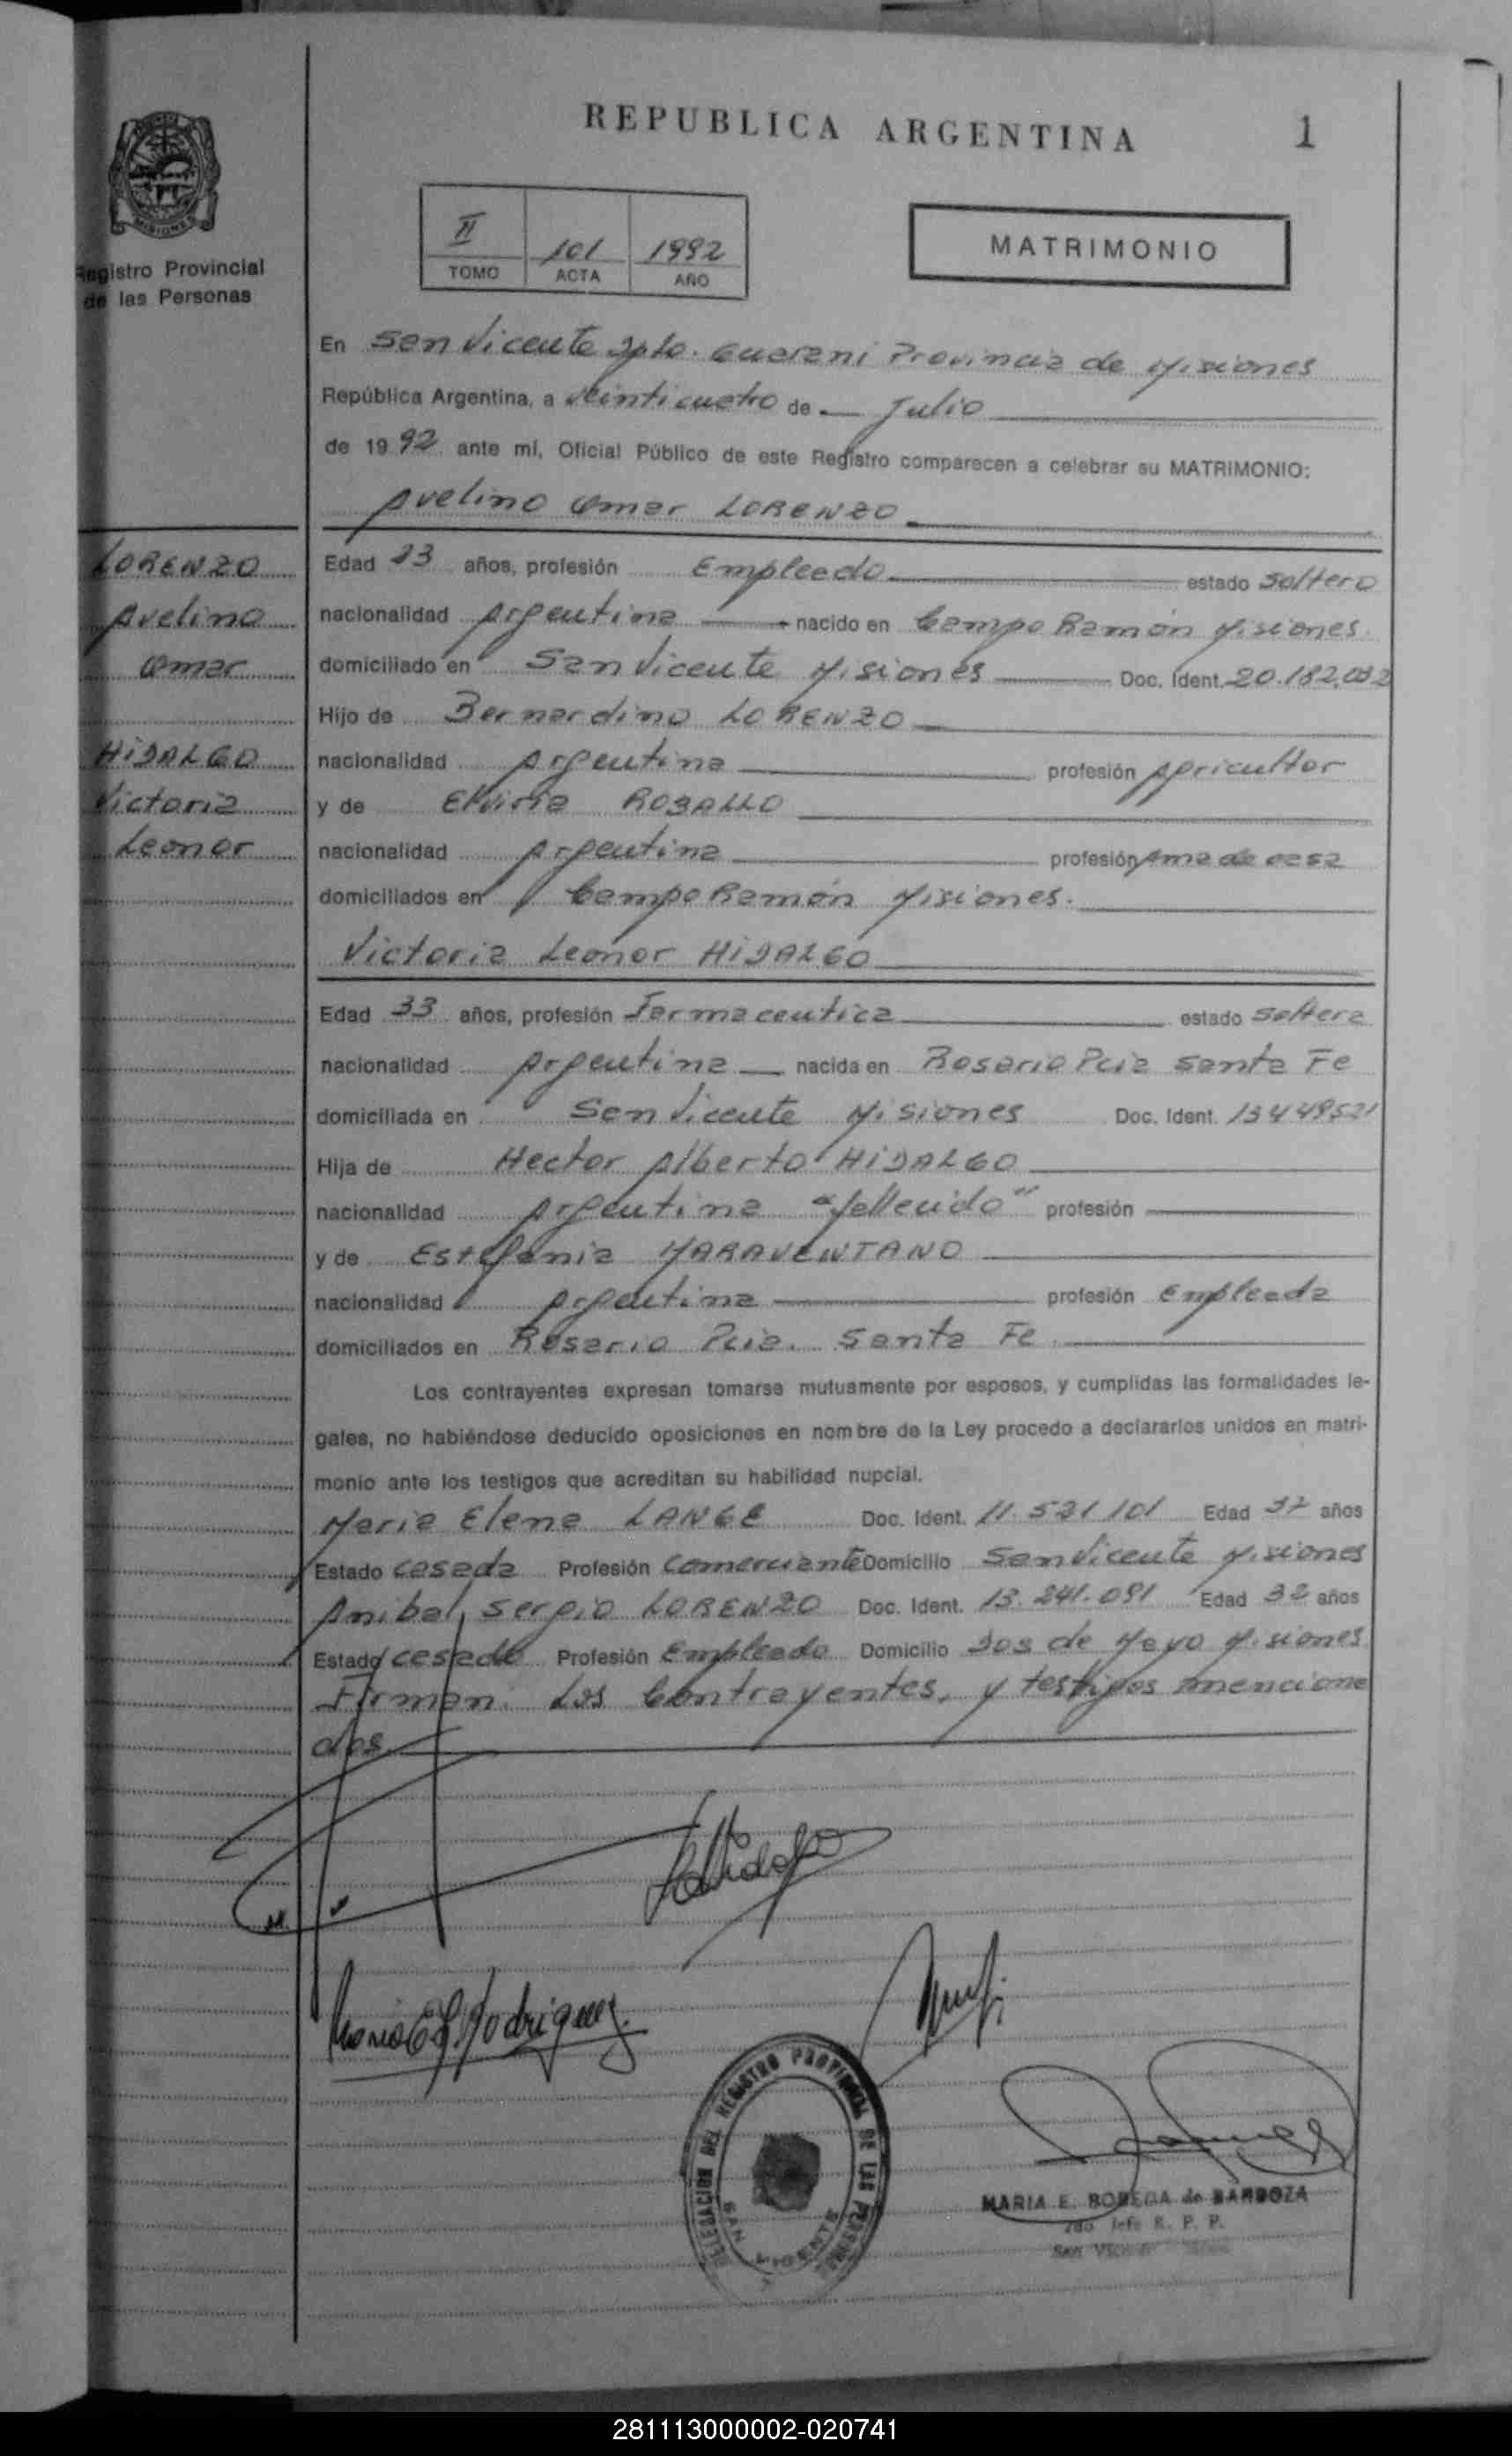 REPUBLICA ARGENTINA 1
MISIONES
Registro Provincial
de las Personas
II 101 1992
TOMO ACTA AÑO
MATRIMONIO
En San Vicente Dpto. Guarani Provincia de Misiones
República Argentina, a veinticuatro de Julio
de 1992 ante mí, Oficial Público de este Registro comparecen a celebrar su MATRIMONIO:
Avelino Omar LORENZO
LORENZO
Avelino
Omar
HIDALGO
Victoria
Leonor
Edad 23 años, profesión Empleado estado Soltero
nacionalidad Argentina nacido en Campo Ramón Misiones.
domiciliado en San Vicente Misiones Doc. Ident. 20.182.032
Hijo de Bernardino LORENZO
nacionalidad Argentina profesión Agricultor
y de Elviria ROBALLO
nacionalidad Argentina profesión Ama de casa
domiciliados en Campo Ramón Misiones.
Victoria Leonor HIDALGO
Edad 33 años, profesión Farmaceutica estado Soltera
nacionalidad Argentina nacida en Rosario Pcia Santa Fe
domiciliada en San Vicente Misiones Doc. Ident. 13449521
Hija de Hector Alberto HIDALGO
nacionalidad Argentina "fallecido" profesión
y de Estefania MARAVENTANO
nacionalidad Argentina profesión Empleada
domiciliados en Rosario Pcia. Santa Fe
Los contrayentes expresan tomarse mutuamente por esposos, y cumplidas las formalidades le-
gales, no habiéndose deducido oposiciones en nombre de la Ley procedo a declararlos unidos en matri-
monio ante los testigos que acreditan su habilidad nupcial.
Maria Elena LANGE Doc. Ident. 11.521101 Edad 37 años
Estado casada Profesión Comerciante Domicilio San Vicente Misiones
Anibal Sergio LORENZO Doc. Ident. 13.241.091 Edad 32 años
Estado casado Profesión Empleado Domicilio Dos de Mayo Misiones
Firman. Los Contrayentes, y testigos menciona
dos.
Maria E. L. Rodriguez
DELEGACION DEL REGISTRO PROVINCIAL DE LAS PERSONAS
SAN VICENTE
MARIA E. de BARBOZA
2do Jefe R. P. P.
San Vicente
281113000002-020741